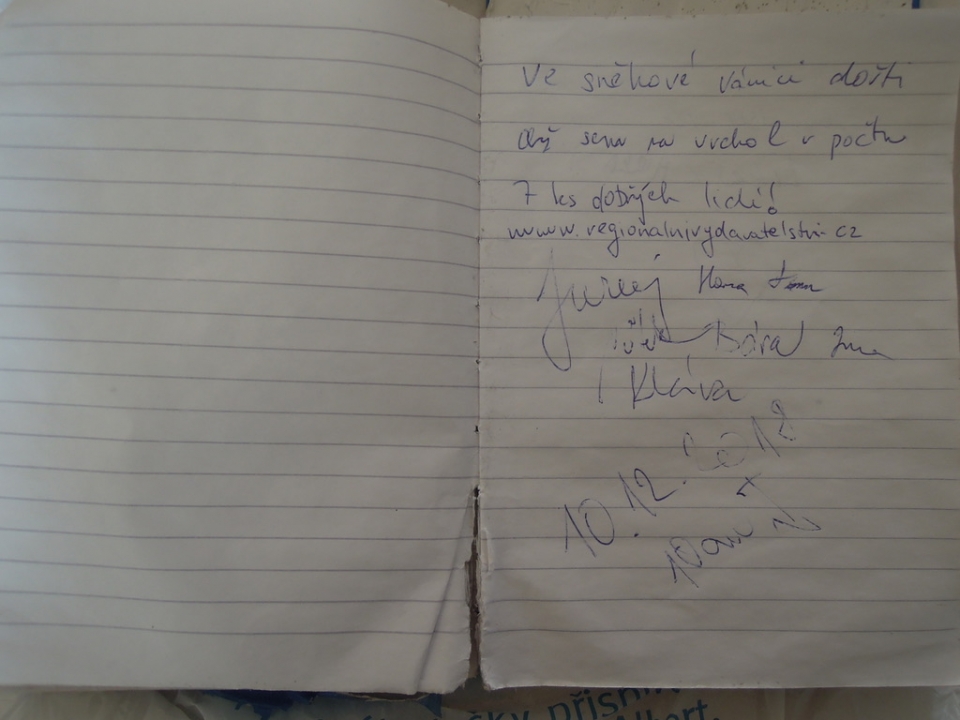 Ve sněhové vánici došli
až sem na vrchol v počtu
7 ks dobrých lidí!
www.regionalnivydavatelstvi.cz
Hana
Bára
Klára
10.12. 2018
10am
čky přísn
Albert.